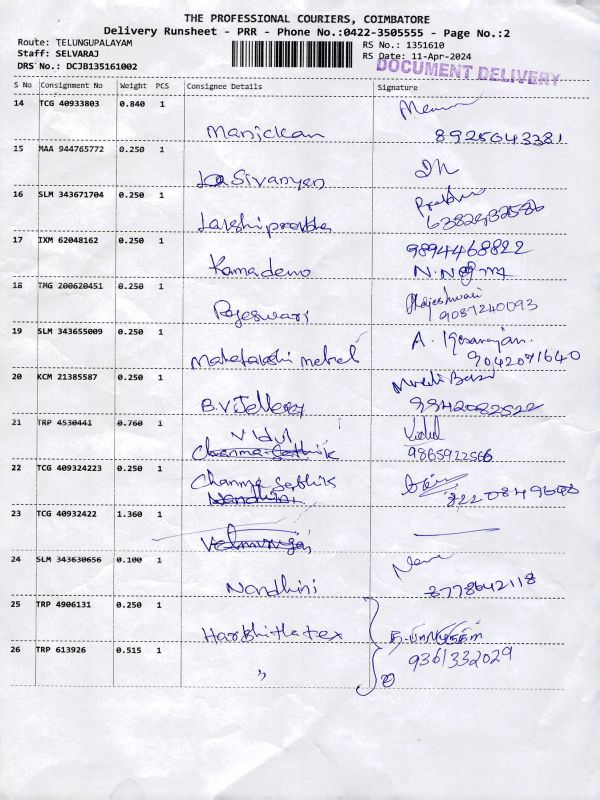 THE PROFESSIONAL COURIERS, COIMBATORE
Delivery Runsheet - PRR - Phone No.:0422-3505555 - Page No.:2
Route: TELUNGUPALAYAM
Staff: SELVARAJ
DRS No.: DCJB135161002
RS No.: 1351610
RS Date: 11-Apr-2024
DOCUMENT DELIVERY
S No Consignment No Weight PCS Consignee Details Signature
14 TCG 40933803 0.840 1
Manickan 8925643381
15 MAA 944765772 0.250 1
Sivanyen
16 SLM 343671704 0.250 1 Prabhu
Lakshiprabha
17 IXM 62048162 0.250 1 9894468822
Kamadenu
18 TMG 200620451 0.250 1 Rajeshwari
Rajeswari 9087240093
19 SLM 343655009 0.250 1 A.
Mahalakshi metal 9042091640
20 KCM 21385587 0.250 1
B.V Jellery 9942082522
21 TRP 4530441 0.760 1 Vidul Vidul
9865922566
22 TCG 409324223 0.250 1 Channma Sathik
Nandhini
23 TCG 40932422 1.360 1
Velmurugan
24 SLM 343630656 0.100 1
Nandhini 8778642118
25 TRP 4906131 0.250 1
Harkhitha tex
26 TRP 613926 0.515 1 9361332029
"